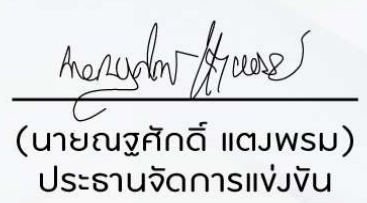 (นายณฐศักดิ์ แตงพรม)
ประธานจัดการแข่งขัน